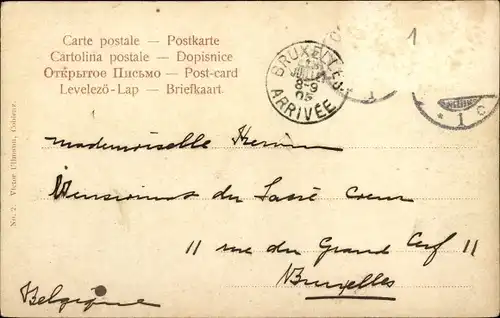 Carte postale — Postkarte
Cartolina postale — Dopisnice
Открытое Письмо — Post-card
Levelező-Lap — Briefkaart.
BRUXELLES
JUIL
8-9
05
ARRIVÉE
1
* 1 c
No. 2. Victor Ullmann, Coblenz.
Mademoiselle
Pensionnat du Sacré Coeur
11 rue du Grand Cerf 11
Bruxelles
Belgique